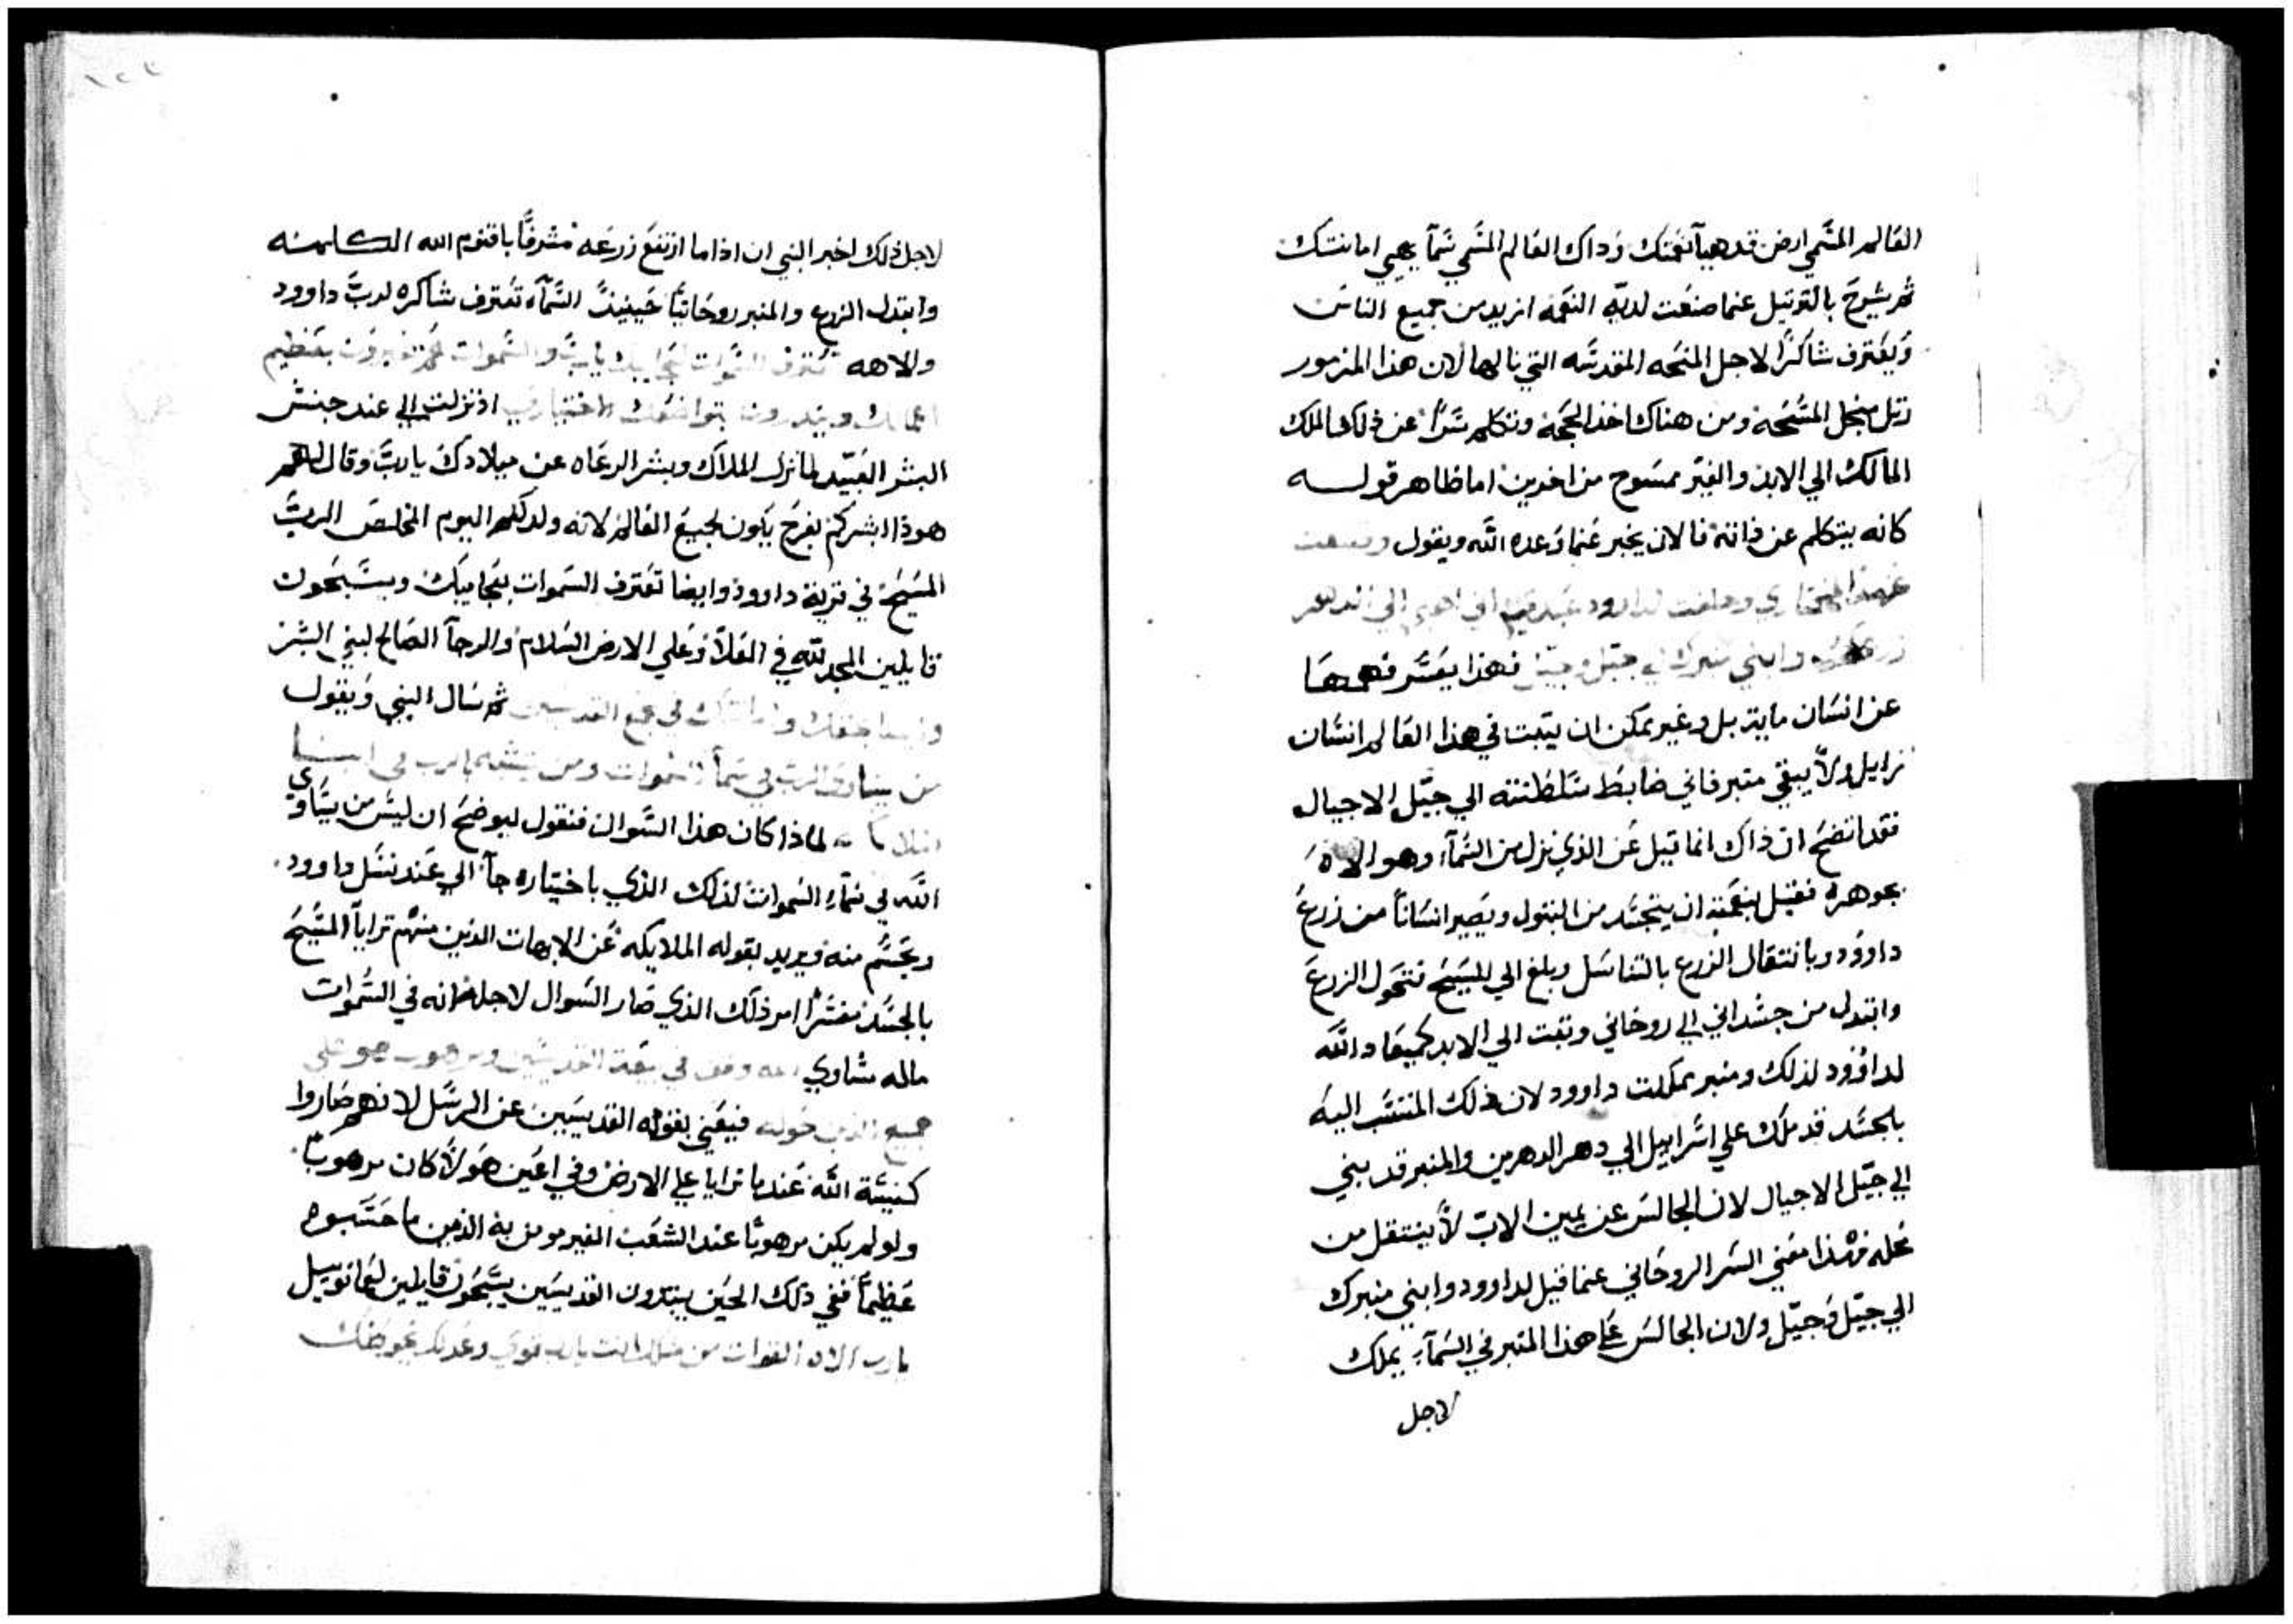 العالم المسمي ارض قد هيأ نعمتك وذاك العالم المسمي سمآ يهيي امانتك
ثم يشرح بالترتيل عما صنعت لديه النعمه ازيد من جميع الناس
ويعترف شاكرًا لاجل المنحه المقدسه التي نالها لان هذا المزمور
رتل منجل المسحة ومن هناك اخذ الحجة وتكلم سرًا عن ذلك الملك
المالك الي الابد والغير ممسوح من اخرين اما ظاهر قوله
كانه يتكلم عن ذاته فالان يخبر عما وعده الله ويقول وضعت
عهدًا لمختاري وحلفت لداوود عبدي اني اهيي الي الدهر
زرعك وابني منبرك الي جيل وجيل فهذا يعسر فهمها
عن انسان مايت بل وغير ممكن ان يتبت في هذا العالم انسان
زايل ولا يبقي منبر فاني ضابط سلطنته الي جيل الاجيال
فقد اتضح ان ذاك انما قيل عن الذي نزل من السمآ وهو الاه
بجوهره فقبل بنعمته ان يتجسد من البتول ويصير انسانًا من زرع
داوود وبانتقال الزرع بالتناسل وبلغ الي المسيح فتحول الزرع
وابتدل من جسداني الي روحاني وتبت الي الابد كميعاد الله
لداوود لذلك ومنبر مملكت داوود لان ذلك المنتسب اليه
بالجسد قد ملك علي اسراييل الي دهر الدهرين والمنبر قد بني
الي جيل الاجيال لان الجالس عن يمين الاب لا ينتقل من
محله فهذا معني السر الروحاني عما قيل لداوود وابني منبرك
الي جيل وجيل ولان الجالس علي هذا المنبر في السمآ يملك
لاجل
لاجل ذلك اخبر النبي ان اذا ما ارتفع زرعه مشرفًا باقنوم الله الكلمه
وابتدل الزرع والمنبر روحانيًا حينيذً السمآ تعترف شاكره لرب داوود
والاهه تعترف السموات لعجايبك يا رب والسموات يخبرون بتعظيم
اعمالك بتواضعك الاختياري اذ نزلت الي عند جنس
البشر العبيد لما نزل الملاك وبشر الرعاه عن ميلادك يا رب وقال لهم
هوذا ابشركم بفرح يكون لجميع العالم لانه ولد لكم اليوم المخلص الرب
المسيح في قرية داوود وايضا تعترف السموات بعجايبك ويسبحون
قايلين المجد لله في العلا وعلي الارض السلام والرجآ الصالح لبني البشر
وايضا حقك في مجمع القديسين ثم سال النبي ويقول
من يساوي الرب في سمآ السموات ومن يتشبه بالرب في ابنا
الله لماذا كان هذا السوال فنقول ليوضح ان ليس من يساوي
الله في سمآ السموات لذلك الذي باختياره جآ الي عند نسل داوود
وتجسم منه ويريد بقوله الملايكه عن الابهات الذين منهم ترايا المسيح
بالجسد مفسرًا امر ذلك الذي صار السوال لاجله انه في السموات
ماله مساوي الله في القديسين ومرهوب هو علي
جميع الذين حوله فيعني بقوله القديسين عن الرسل لانهم صاروا
كنيسة الله عندما ترايا علي الارض وفي اعين هولا كان مرهوبًا
ولو لم يكن مرهوبًا عند الشعب الغير مومن به الذين ما حسبوه
عظيمًا ففي ذلك الحين يبتدون القديسين يسبحون قايلين لعمانوييل
يا رب الاه القوات من مثلك انت يا رب قوي وعدلك يحوطك